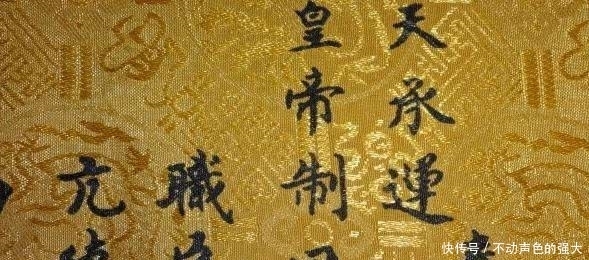 天承運
皇帝制
職
亢
快传号 / 不动声色的强大